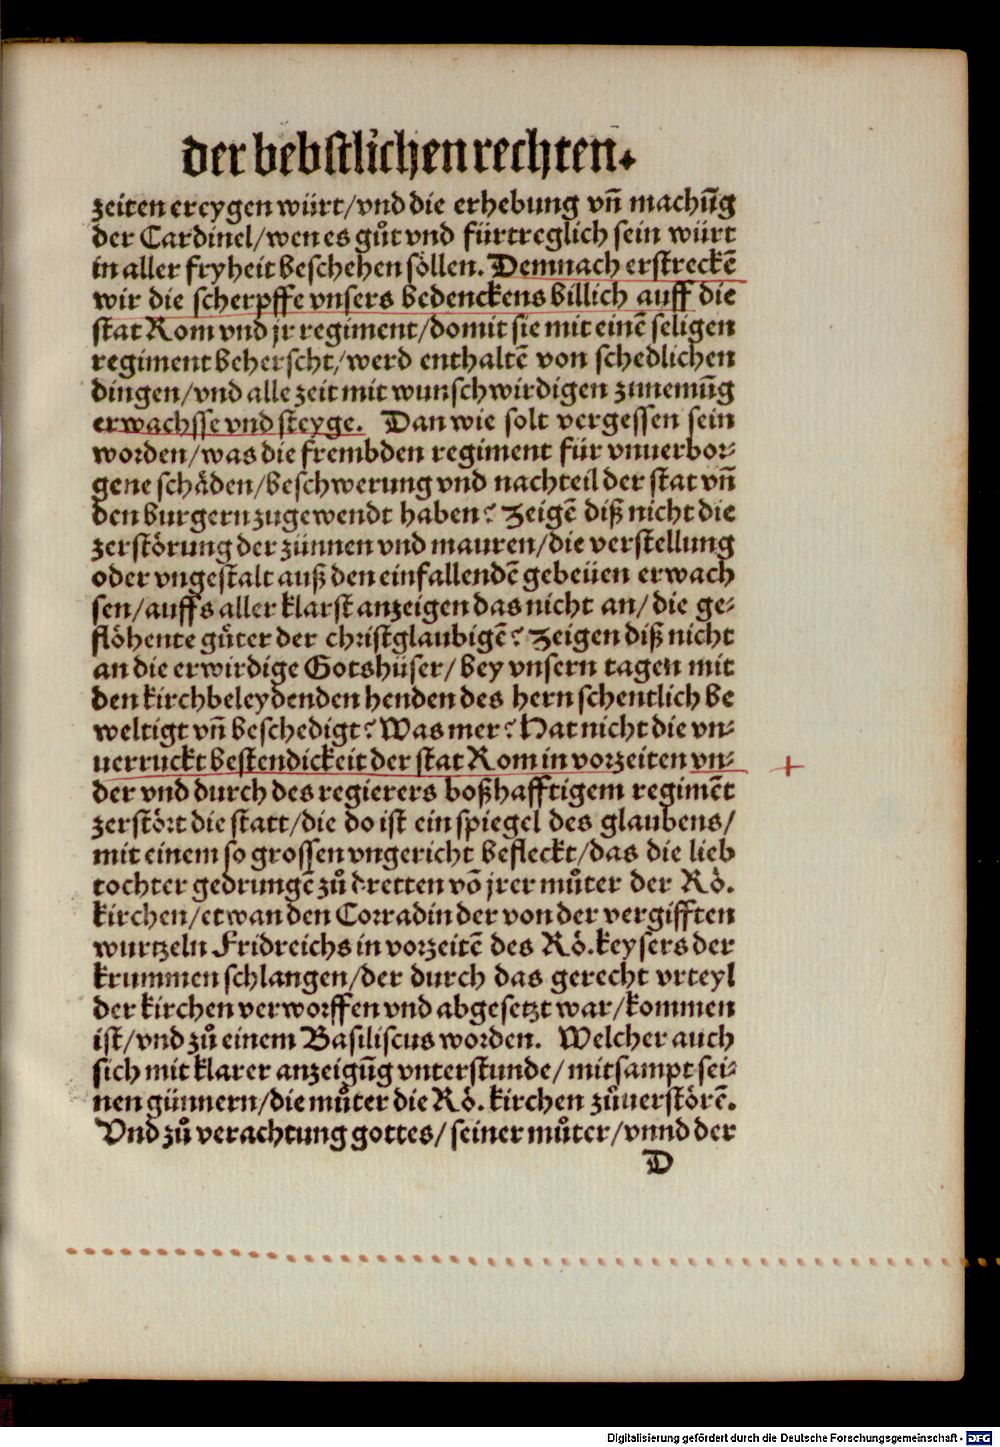 der bebstlichen rechten.
zeiten ereygen würt/vnd die erhebung vn̄ machūg
der Cardinel/wen es gůt vnd fürtreglich sein würt
in aller fryheit beschehen söllen. Demnach erstreckē
wir die scherpffe vnsers bedenckens billich auff die
stat Rom vnd jr regiment/domit sie mit einē seligen
regiment beherscht/werd enthaltē von schedlichen
dingen/vnd alle zeit mit wunschwirdigen zunemūg
erwachsse vnd steyge. Dan wie solt vergessen sein
worden/was die frembden regiment für vnuerbor⸗
gene schäden/beschwerung vnd nachteil der stat vn̄
den burgern zugewendt haben? Zeigē diß nicht die
zerstörung der zünnen vnd mauren/die verstellung
oder vngestalt auß den einfallendē gebeüen erwach
sen/auffs aller klarst anzeigen das nicht an/die ge⸗
flöhente gůter der christglaubigē? Zeigen diß nicht
an die erwirdige Gotshüser/bey vnsern tagen mit
den kirchbeleydenden henden des hern schentlich be
weltigt vn̄ beschedigt? Was mer? Hat nicht die vn⸗
uerruckt bestendickeit der stat Rom in vorzeiten vn⸗
der vnd durch des regierers boßhafftigem regimēt
zerstört die statt/die do ist ein spiegel des glaubens/
mit einem so grossen vngericht befleckt/das die lieb
tochter gedrungē zů dretten vō jrer můter der Rö.
kirchen/etwan den Corradin der von der vergifften
wurtzeln Fridreichs in vorzeitē des Rö. keysers der
krummen schlangen/der durch das gerecht vrteyl
der kirchen verworffen vnd abgesetzt war/kommen
ist/vnd zů einem Basiliscus worden. Welcher auch
sich mit klarer anzeigūg vnterstunde/mitsampt sei⸗
nen günnern/die můter die Rö. kirchen zůuerstörē.
Vnd zů verachtung gottes/seiner můter/vnnd der
D
Digitalisierung gefördert durch die Deutsche Forschungsgemeinschaft - DFG